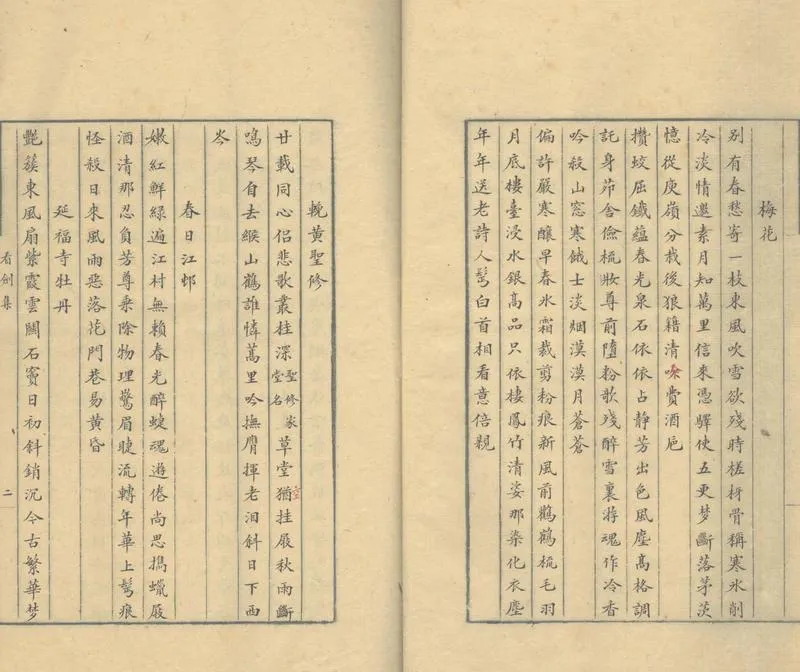 梅花
別有春愁寄一枝東風吹雪欲殘時槎枒骨稱寒氷削
冷淡情邀素月知萬里信來憑驛使五更梦斷落茅茨
憶從庾嶺分栽後狼籍清費酒巵
攢蛟屈鐵蘊春光泉石依依占靜芳出色風塵高格調
託身茆舍儉梳妝尊前墮粉歌殘醉雪裏魂作冷香
吟殺山窓寒餓士淡烟漠漠月蒼蒼
偏許嚴寒釀早春氷霜裁剪粉痕新風前鸛鶴梳毛羽
月底樓臺浸水銀高品只依棲鳳竹清姿那染化衣塵
年年送老詩人鬂白首相看意倍親
輓黃聖修
廿載同心侶悲歌叢桂深聖修家堂名草堂猶挂屐秋雨斷
鳴琴自去緱山鶴誰憐蒿里吟撫膺揮老泪斜日下西
岑
春日江邨
嫩紅鮮綠遍江村無賴春光醉蜨魂遊倦尚思搗蠟屐
酒清那忍負芳尊乘除物理驚眉睫流轉年華上鬂痕
怪殺日來風雨惡落花門巷易黃昏
延福寺牡丹
艷簇東風扇紫霞雲關石竇日初斜銷沉今古繁華梦
看劍集
二